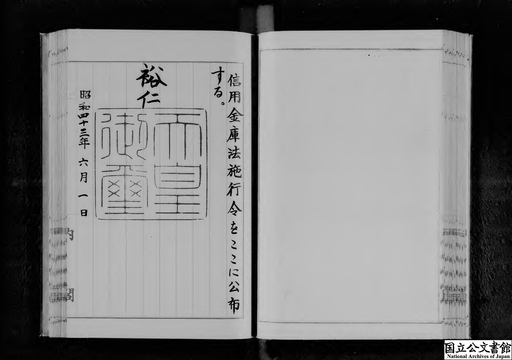 信用金庫法施行令をここに公布
する。
裕仁
天皇
御璽
昭和四十三年六月一日
内閣
国立公文書館
National Archives of Japan